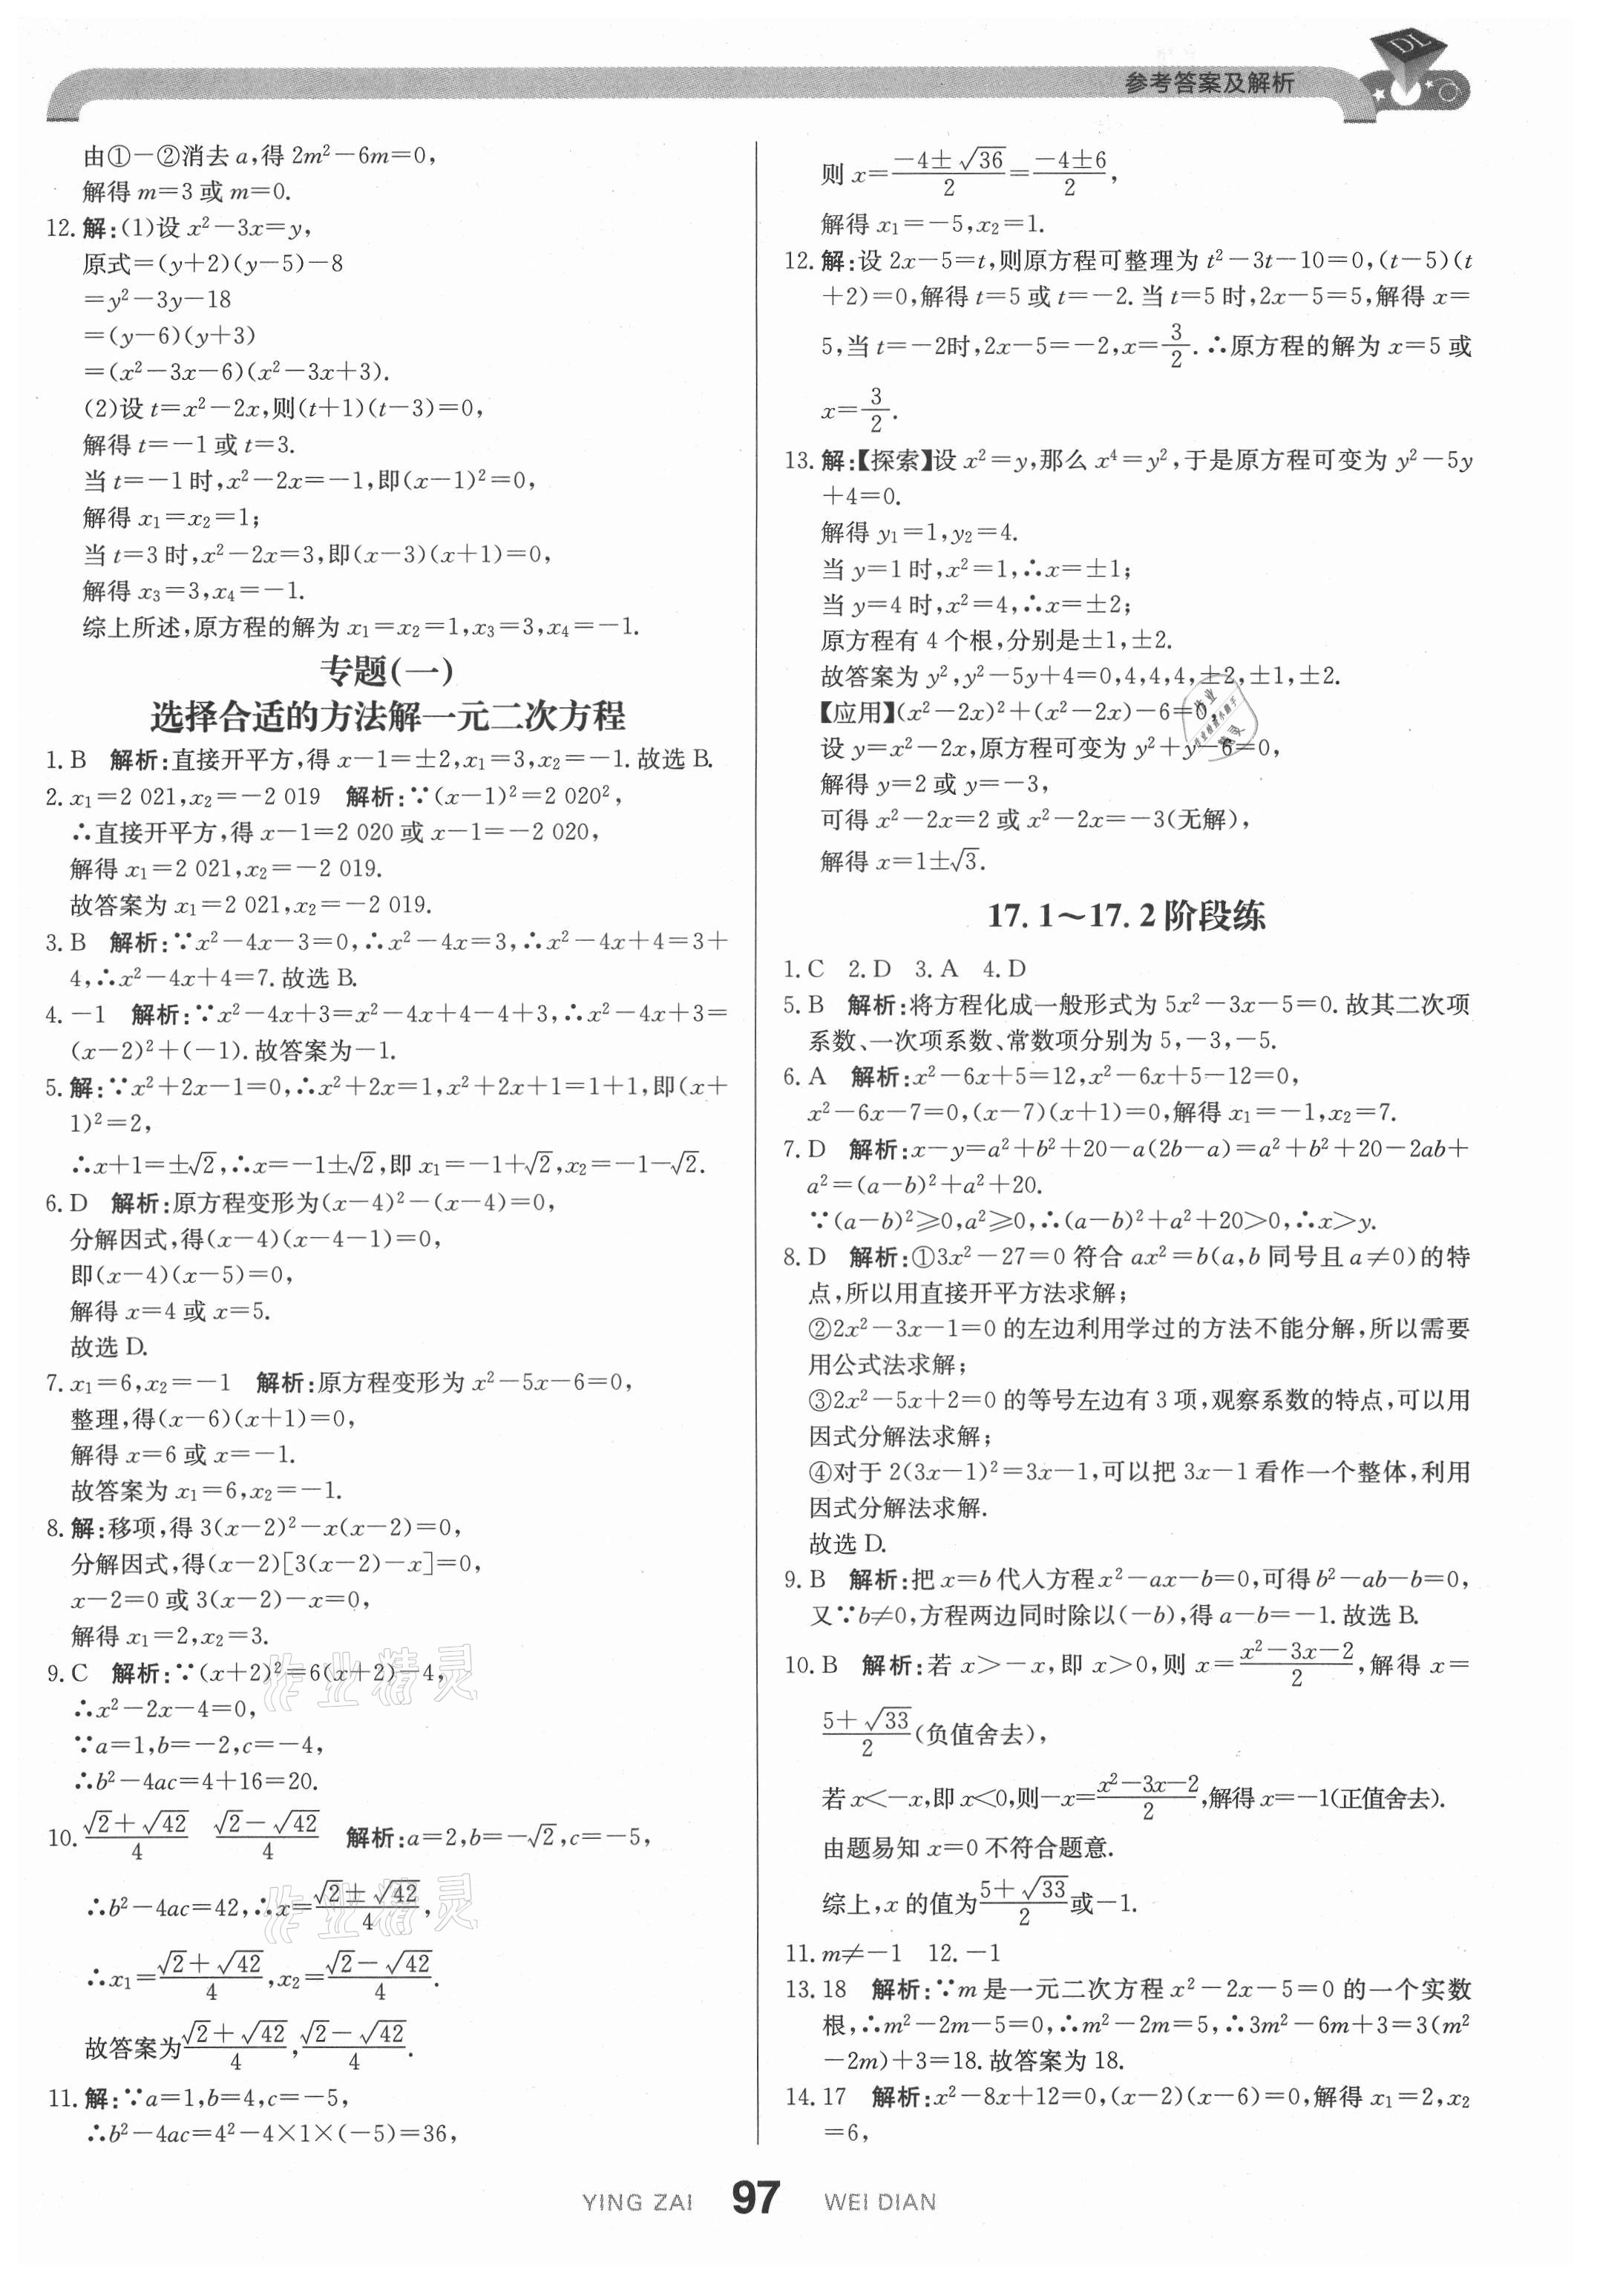 参考答案及解析
DL
由①-②消去 a,得 2m²-6m=0,
解得 m=3 或 m=0.
12. 解:(1)设 x²-3x=y,
原式=(y+2)(y-5)-8
=y²-3y-18
=(y-6)(y+3)
=(x²-3x-6)(x²-3x+3).
(2)设 t=x²-2x,则(t+1)(t-3)=0,
解得 t=-1 或 t=3.
当 t=-1 时,x²-2x=-1,即(x-1)²=0,
解得 x₁=x₂=1;
当 t=3 时,x²-2x=3,即(x-3)(x+1)=0,
解得 x₃=3,x₄=-1.
综上所述,原方程的解为 x₁=x₂=1,x₃=3,x₄=-1.
专题(一)
选择合适的方法解一元二次方程
1. B 解析:直接开平方,得 x-1=±2,x₁=3,x₂=-1.故选 B.
2. x₁=2 021,x₂=-2 019 解析:∵(x-1)²=2 020²,
∴直接开平方,得 x-1=2 020 或 x-1=-2 020,
解得 x₁=2 021,x₂=-2 019.
故答案为 x₁=2 021,x₂=-2 019.
3. B 解析:∵x²-4x-3=0,∴x²-4x=3,∴x²-4x+4=3+
4,∴x²-4x+4=7.故选 B.
4. -1 解析:∵x²-4x+3=x²-4x+4-4+3,∴x²-4x+3=
(x-2)²+(-1).故答案为-1.
5. 解:∵x²+2x-1=0,∴x²+2x=1,x²+2x+1=1+1,即(x+
1)²=2,
∴x+1=±√2,∴x=-1±√2,即 x₁=-1+√2,x₂=-1-√2.
6. D 解析:原方程变形为(x-4)²-(x-4)=0,
分解因式,得(x-4)(x-4-1)=0,
即(x-4)(x-5)=0,
解得 x=4 或 x=5.
故选 D.
7. x₁=6,x₂=-1 解析:原方程变形为 x²-5x-6=0,
整理,得(x-6)(x+1)=0,
解得 x=6 或 x=-1.
故答案为 x₁=6,x₂=-1.
8. 解:移项,得 3(x-2)²-x(x-2)=0,
分解因式,得(x-2)[3(x-2)-x]=0,
x-2=0 或 3(x-2)-x=0,
解得 x₁=2,x₂=3.
9. C 解析:∵(x+2)²=6(x+2)-4,
∴x²-2x-4=0,
∵a=1,b=-2,c=-4,
∴b²-4ac=4+16=20.
10. (√2+√42)/4 (√2-√42)/4 解析:a=2,b=-√2,c=-5,
∴b²-4ac=42,∴x=(√2±√42)/4,
∴x₁=(√2+√42)/4,x₂=(√2-√42)/4.
故答案为(√2+√42)/4,(√2-√42)/4.
11. 解:∵a=1,b=4,c=-5,
∴b²-4ac=4²-4×1×(-5)=36,
则 x=(-4±√36)/2=(-4±6)/2,
解得 x₁=-5,x₂=1.
12. 解:设 2x-5=t,则原方程可整理为 t²-3t-10=0,(t-5)(t
+2)=0,解得 t=5 或 t=-2.当 t=5 时,2x-5=5,解得 x=
5,当 t=-2时,2x-5=-2,x=3/2.∴原方程的解为 x=5 或
x=3/2.
13. 解:【探索】设 x²=y,那么 x⁴=y²,于是原方程可变为 y²-5y
+4=0.
解得 y₁=1,y₂=4.
当 y=1 时,x²=1,∴x=±1;
当 y=4 时,x²=4,∴x=±2;
原方程有 4 个根,分别是±1,±2.
故答案为 y²,y²-5y+4=0,4,4,4,±2,±1,±2.
【应用】(x²-2x)²+(x²-2x)-6=0,
设 y=x²-2x,原方程可变为 y²+y-6=0,
解得 y=2 或 y=-3,
可得 x²-2x=2 或 x²-2x=-3(无解),
解得 x=1±√3.
17.1~17.2 阶段练
1. C 2. D 3. A 4. D
5. B 解析:将方程化成一般形式为 5x²-3x-5=0.故其二次项
系数、一次项系数、常数项分别为 5,-3,-5.
6. A 解析:x²-6x+5=12,x²-6x+5-12=0,
x²-6x-7=0,(x-7)(x+1)=0,解得 x₁=-1,x₂=7.
7. D 解析:x-y=a²+b²+20-a(2b-a)=a²+b²+20-2ab+
a²=(a-b)²+a²+20.
∵(a-b)²≥0,a²≥0,∴(a-b)²+a²+20>0,∴x>y.
8. D 解析:①3x²-27=0 符合 ax²=b(a,b 同号且 a≠0)的特
点,所以用直接开平方法求解;
②2x²-3x-1=0 的左边利用学过的方法不能分解,所以需要
用公式法求解;
③2x²-5x+2=0 的等号左边有 3 项,观察系数的特点,可以用
因式分解法求解;
④对于 2(3x-1)²=3x-1,可以把 3x-1 看作一个整体,利用
因式分解法求解.
故选 D.
9. B 解析:把 x=b 代入方程x²-ax-b=0,可得 b²-ab-b=0,
又∵b≠0,方程两边同时除以(-b),得 a-b=-1.故选 B.
10. B 解析:若 x>-x,即 x>0,则 x=(x²-3x-2)/2,解得 x=
(5+√33)/2(负值舍去),
若 x<-x,即 x<0,则-x=(x²-3x-2)/2,解得 x=-1(正值舍去).
由题易知 x=0 不符合题意.
综上,x 的值为(5+√33)/2或-1.
11. m≠-1 12. -1
13. 18 解析:∵m 是一元二次方程 x²-2x-5=0 的一个实数
根,∴m²-2m-5=0,∴m²-2m=5,∴3m²-6m+3=3(m²
-2m)+3=18.故答案为 18.
14. 17 解析:x²-8x+12=0,(x-2)(x-6)=0,解得 x₁=2,x₂
=6,
作业精灵
作业精灵
YING ZAI 97 WEI DIAN